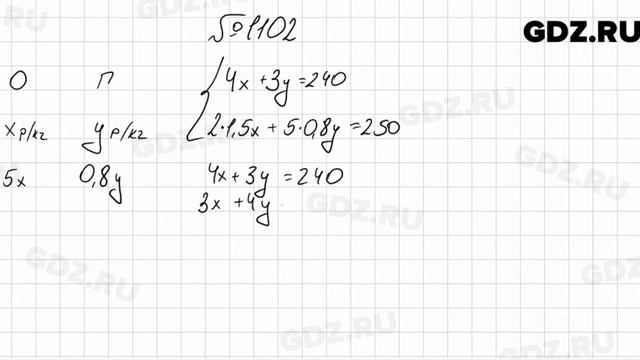 №1102
GDZ.RU
О П
x р/кг y р/кг
5x 0,8y
4x + 3y = 240
2·1,5x + 5·0,8y = 250
4x + 3y = 240
3x + 4y
GDZ.RU
GDZ.RU
GDZ.RU
GDZ.RU
GDZ.RU
GDZ.RU